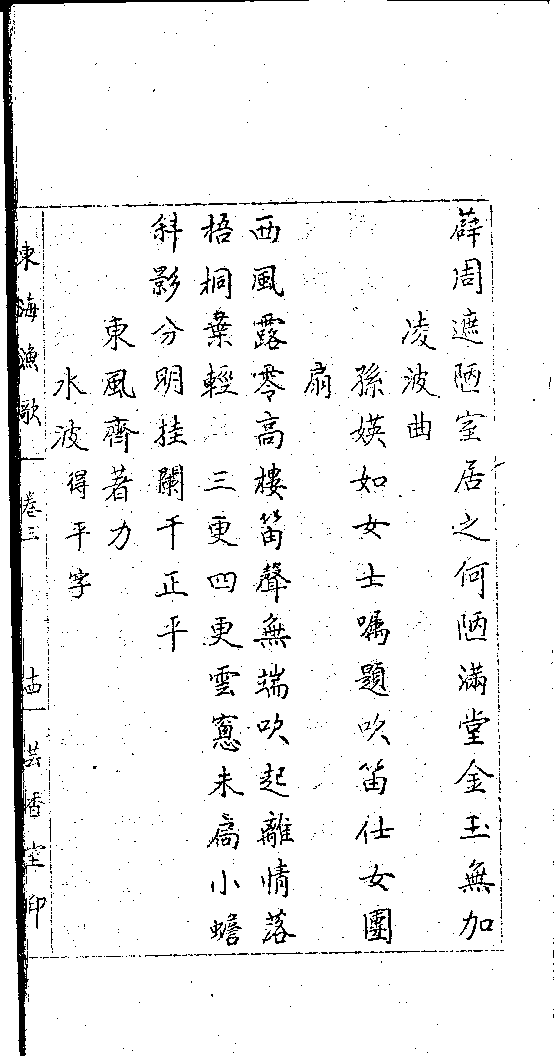 薜周遮陋室居之何陋滿堂金玉無加
凌波曲
孫媖如女士嘱題吹笛仕女團
扇
西風露零高樓笛聲無端吹起離情落
梧桐葉輕 三更四更雲窻未扃小蟾
斜影分明挂闌干正平
東風齊著力
水波得平字
東海漁歌 卷三 芸香室印